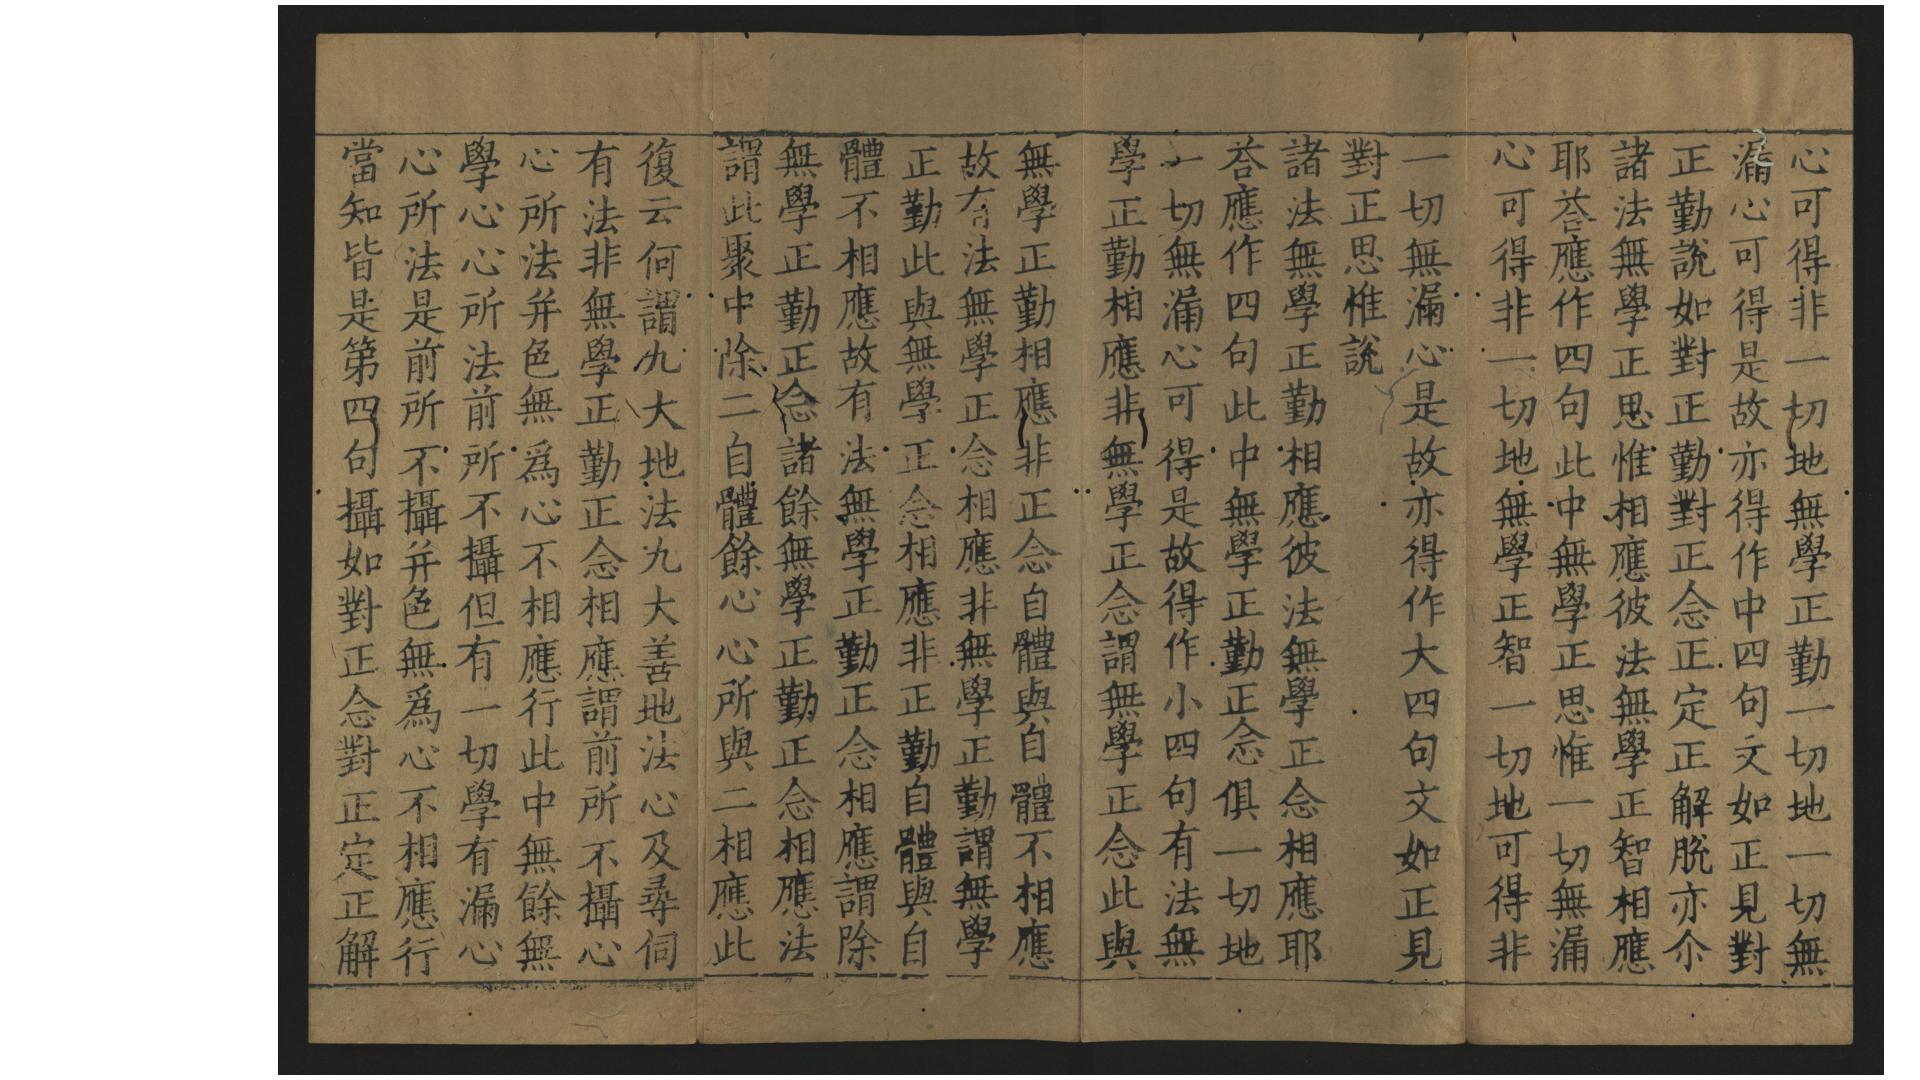 心可得非一切地無學正勤一切地一切無
漏心可得是故亦得作中四句文如正見對
正勤說如對正勤對正念正定正解脫亦尒
諸法無學正思惟相應彼法無學正智相應
耶荅應作四句此中無學正思惟一切無漏
心可得非一切地無學正智一切地可得非
一切無漏心是故亦得作大四句文如正見
對正思惟說
諸法無學正勤相應彼法無學正念相應耶
荅應作四句此中無學正勤正念俱一切地
一切無漏心可得是故得作小四句有法無
學正勤相應非無學正念謂無學正念此與
無學正勤相應非正念自體與自體不相應
故有法無學正念相應非無學正勤謂無學
正勤此與無學正念相應非正勤自體與自
體不相應故有法無學正勤正念相應謂除
無學正勤正念諸餘無學正勤正念相應法
謂此聚中除二自體餘心心所與二相應此
復云何謂九大地法九大善地法心及尋伺
有法非無學正勤正念相應謂前所不攝心
心所法并色無爲心不相應行此中無餘無
學心心所法前所不攝但有一切學有漏心
心所法是前所不攝并色無爲心不相應行
當知皆是第四句攝如對正念對正定正解